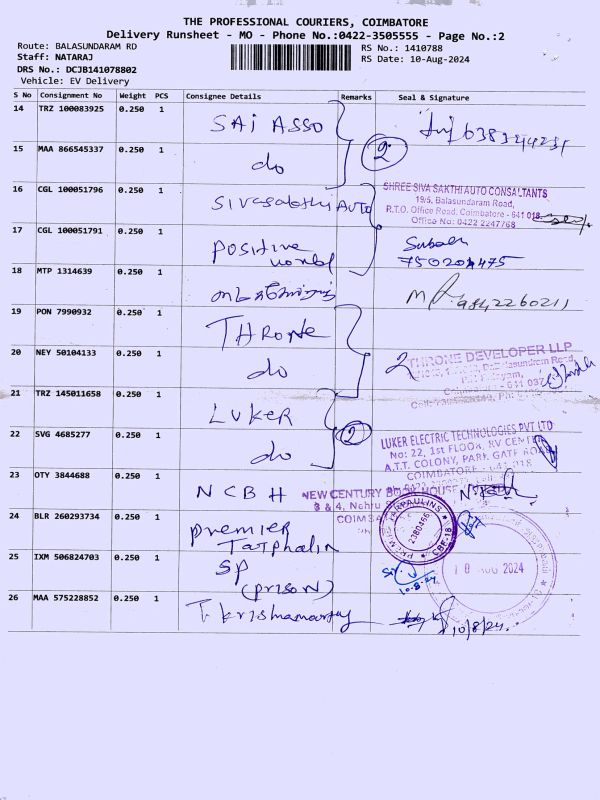 THE PROFESSIONAL COURIERS, COIMBATORE
Delivery Runsheet - MO - Phone No.:0422-3505555 - Page No.:2
Route: BALASUNDARAM RD
RS No.: 1410788
Staff: NATARAJ
RS Date: 10-Aug-2024
DRS No.: DCJB141078802
Vehicle: EV Delivery
S No Consignment No Weight PCS Consignee Details Remarks Seal & Signature
14 TRZ 100083925 0.250 1 SAI ASSO
15 MAA 866545337 0.250 1 do 2
16 CGL 100051796 0.250 1 Sivasakthi AUTO
SHREE SIVA SAKTHI AUTO CONSALTANTS
19/5, Balasundaram Road,
R.T.O. Office Road, Coimbatore - 641 018
Office No: 0422 2247768
17 CGL 100051791 0.250 1 Positive world
18 MTP 1314639 0.250 1
19 PON 7990932 0.250 1 THRONE
20 NEY 50104133 0.250 1 do 2
THRONE DEVELOPER LLP
21 TRZ 145011658 0.250 1 LUKER
22 SVG 4685277 0.250 1 do 2
LUKER ELECTRIC TECHNOLOGIES PVT LTD
No: 22, 1st FLOOR, RV CENTRE
A.T.T. COLONY, PARK GATE ROAD
COIMBATORE - 641 018
23 OTY 3844688 0.250 1 NCBH
NEW CENTURY BOOK HOUSE
24 BLR 260293734 0.250 1 Premier
Tarphalin
25 IXM 506824703 0.250 1 SP
(prison)
10-8-24
10 AUG 2024
26 MAA 575228852 0.250 1 T. Krishnamoorthy
10/8/24.